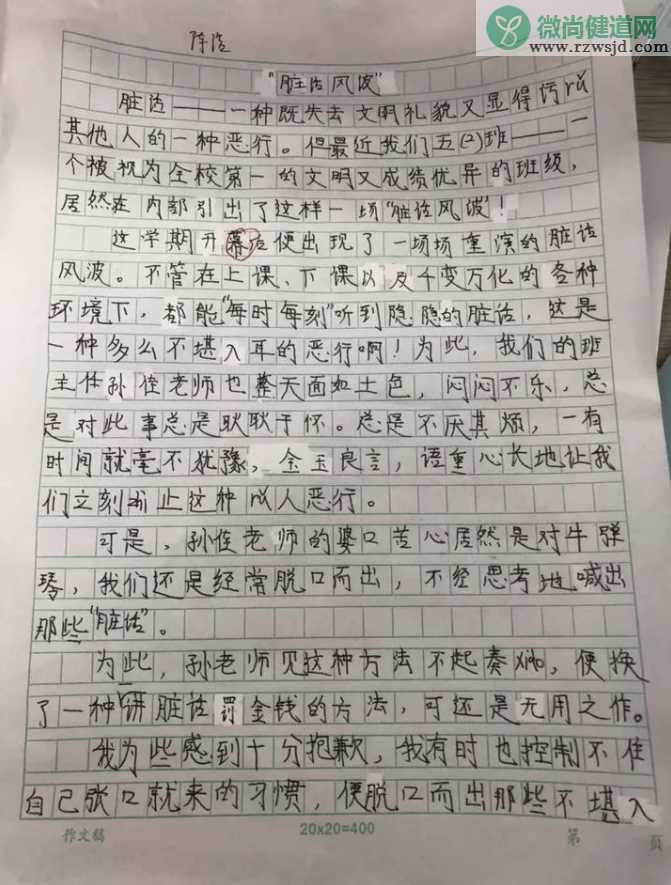 微尚健道网
www.rzwsjd.com
陈浩
“脏话风波”
脏话———一种既失去文明礼貌又显得污
其他人的一种恶行。但最近我们五(2)班———一
个被视为全校第一的文明又成绩优异的班级,
居然在内部引出了这样一场“脏话风波”!
这学期开幕后便出现了一场场重演的脏话
风波。不管在上课、下课以及千变万化的各种
环境下,都能“每时每刻”听到隐隐的脏话,这是
一种多么不堪入耳的恶行啊!为此,我们的班
主任孙俊老师也整天面如土色,闷闷不乐,总
是对此事总是耿耿于怀。总是不厌其烦,一有
时间就毫不犹豫,金玉良言,语重心长地让我
们立刻停止这种恶行。
可是,孙俊老师的婆口苦心居然是对牛弹
琴,我们还是经常脱口而出,不经思考地喊出
那些“脏话”。
为此,孙老师见这种方法不起奏效,便换
了一种讲脏话罚金钱的方法,可还是无用之作。
我为些感到十分抱歉,我有时也控制不住
自己张口就来的习惯,便脱口而出那些不堪入
作文稿
20x20=400
第 页